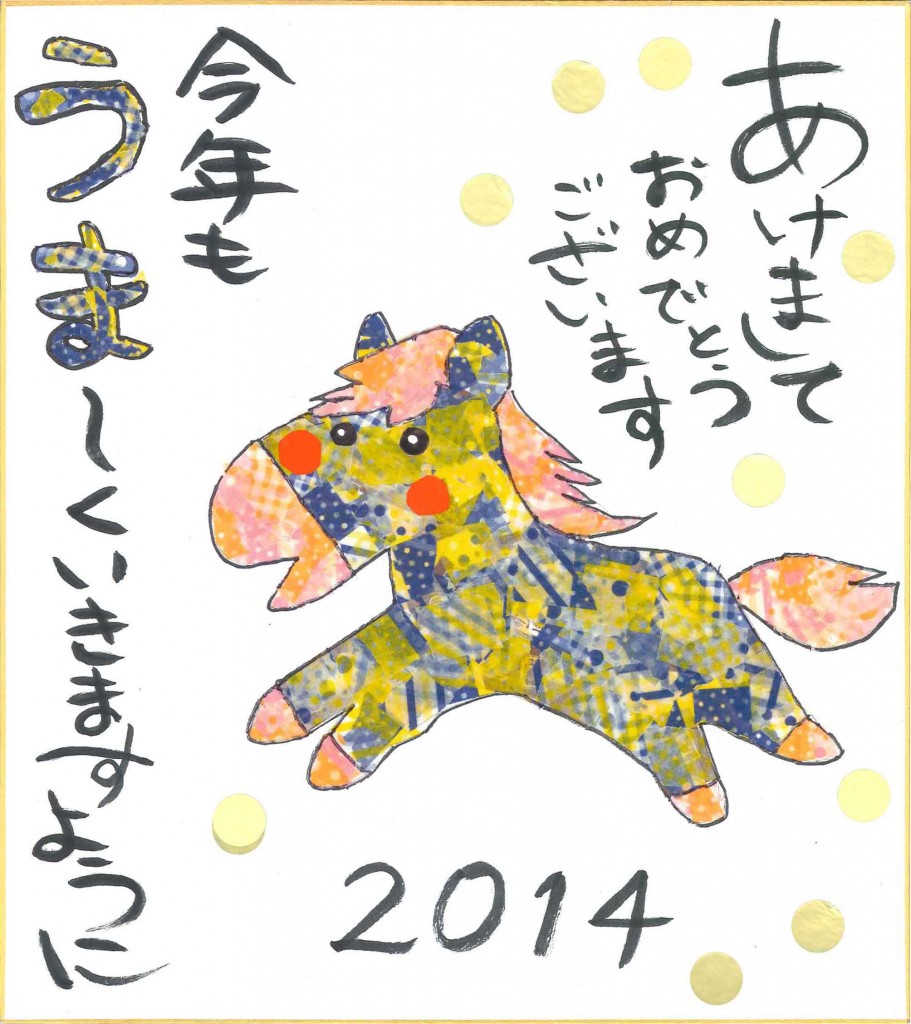 あけまして
おめでとう
ございます
今年も
うま～くいきますように
2014